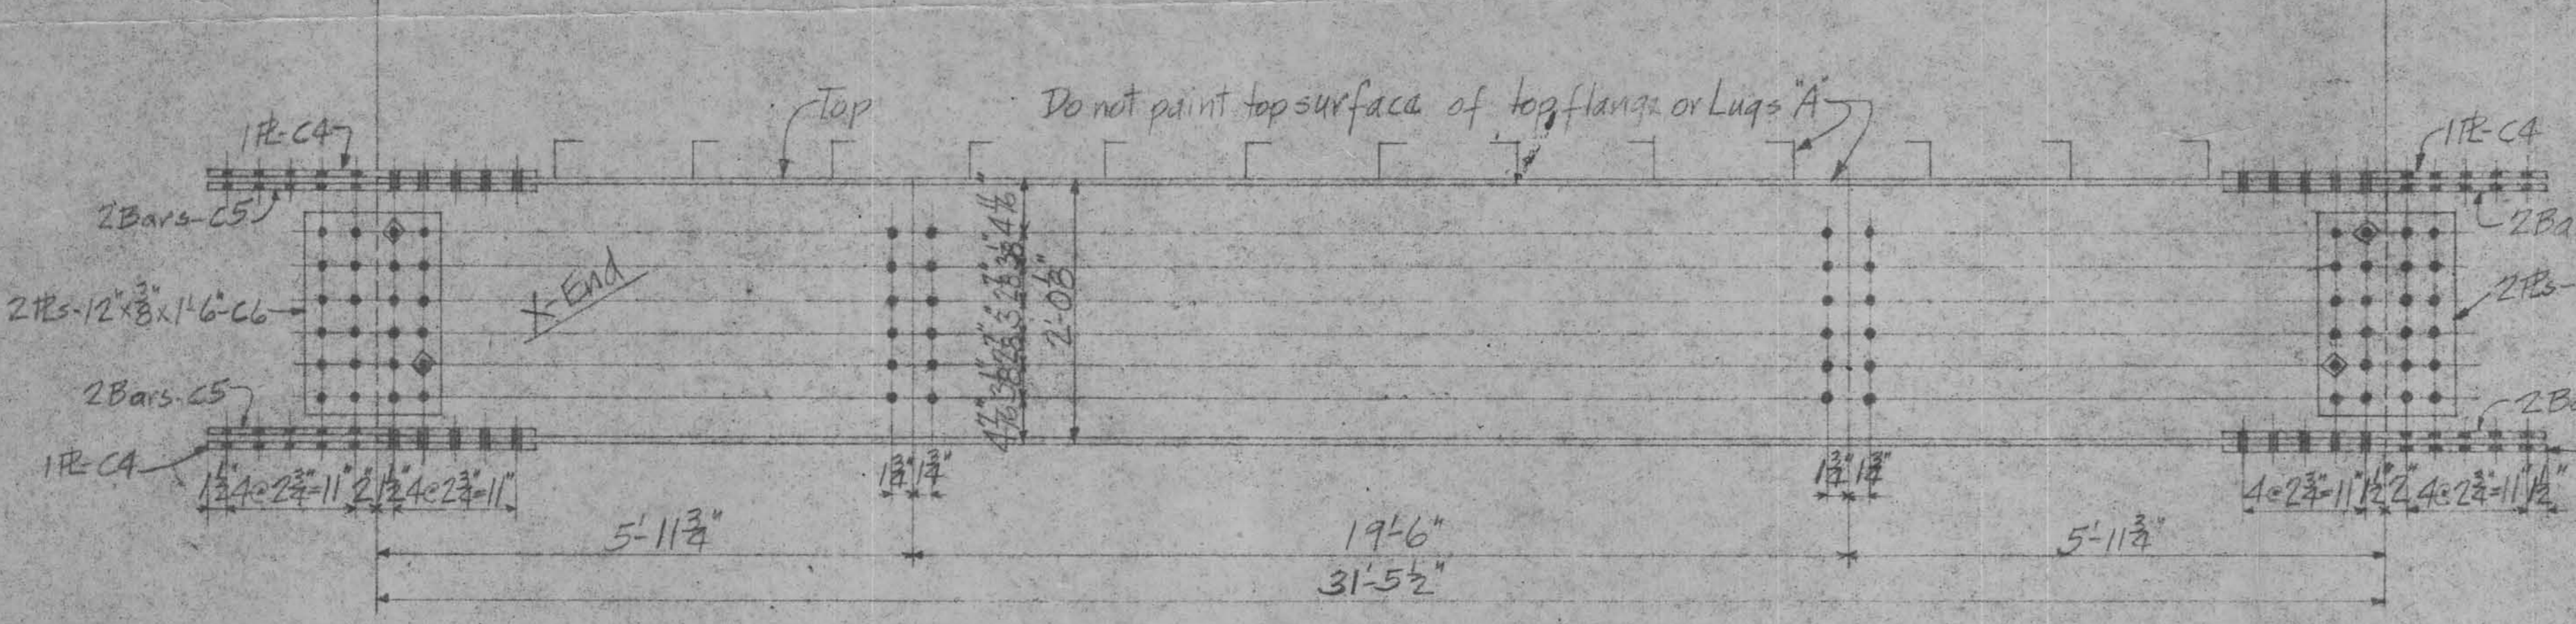 Top
Do not paint top surface of top flange or Lugs "A"
1PL-C4
1PL-C4
2Bars-C5
2Ba
X-End
2PLs-12"x3/8"x1'-6"-C6
2PLs-
2'-0 1/8"
2Bars-C5
2B
1PL-C4
1 1/2" 4@2 3/4"=11" 2" 1 1/2" 4@2 3/4"=11"
1 3/4" 1 3/4"
1 3/4" 1 3/4"
4@2 3/4"=11" 1 1/2" 2" 4@2 3/4"=11" 1 1/2"
5'-11 3/4"
19'-6"
5'-11 3/4"
31'-5 1/2"